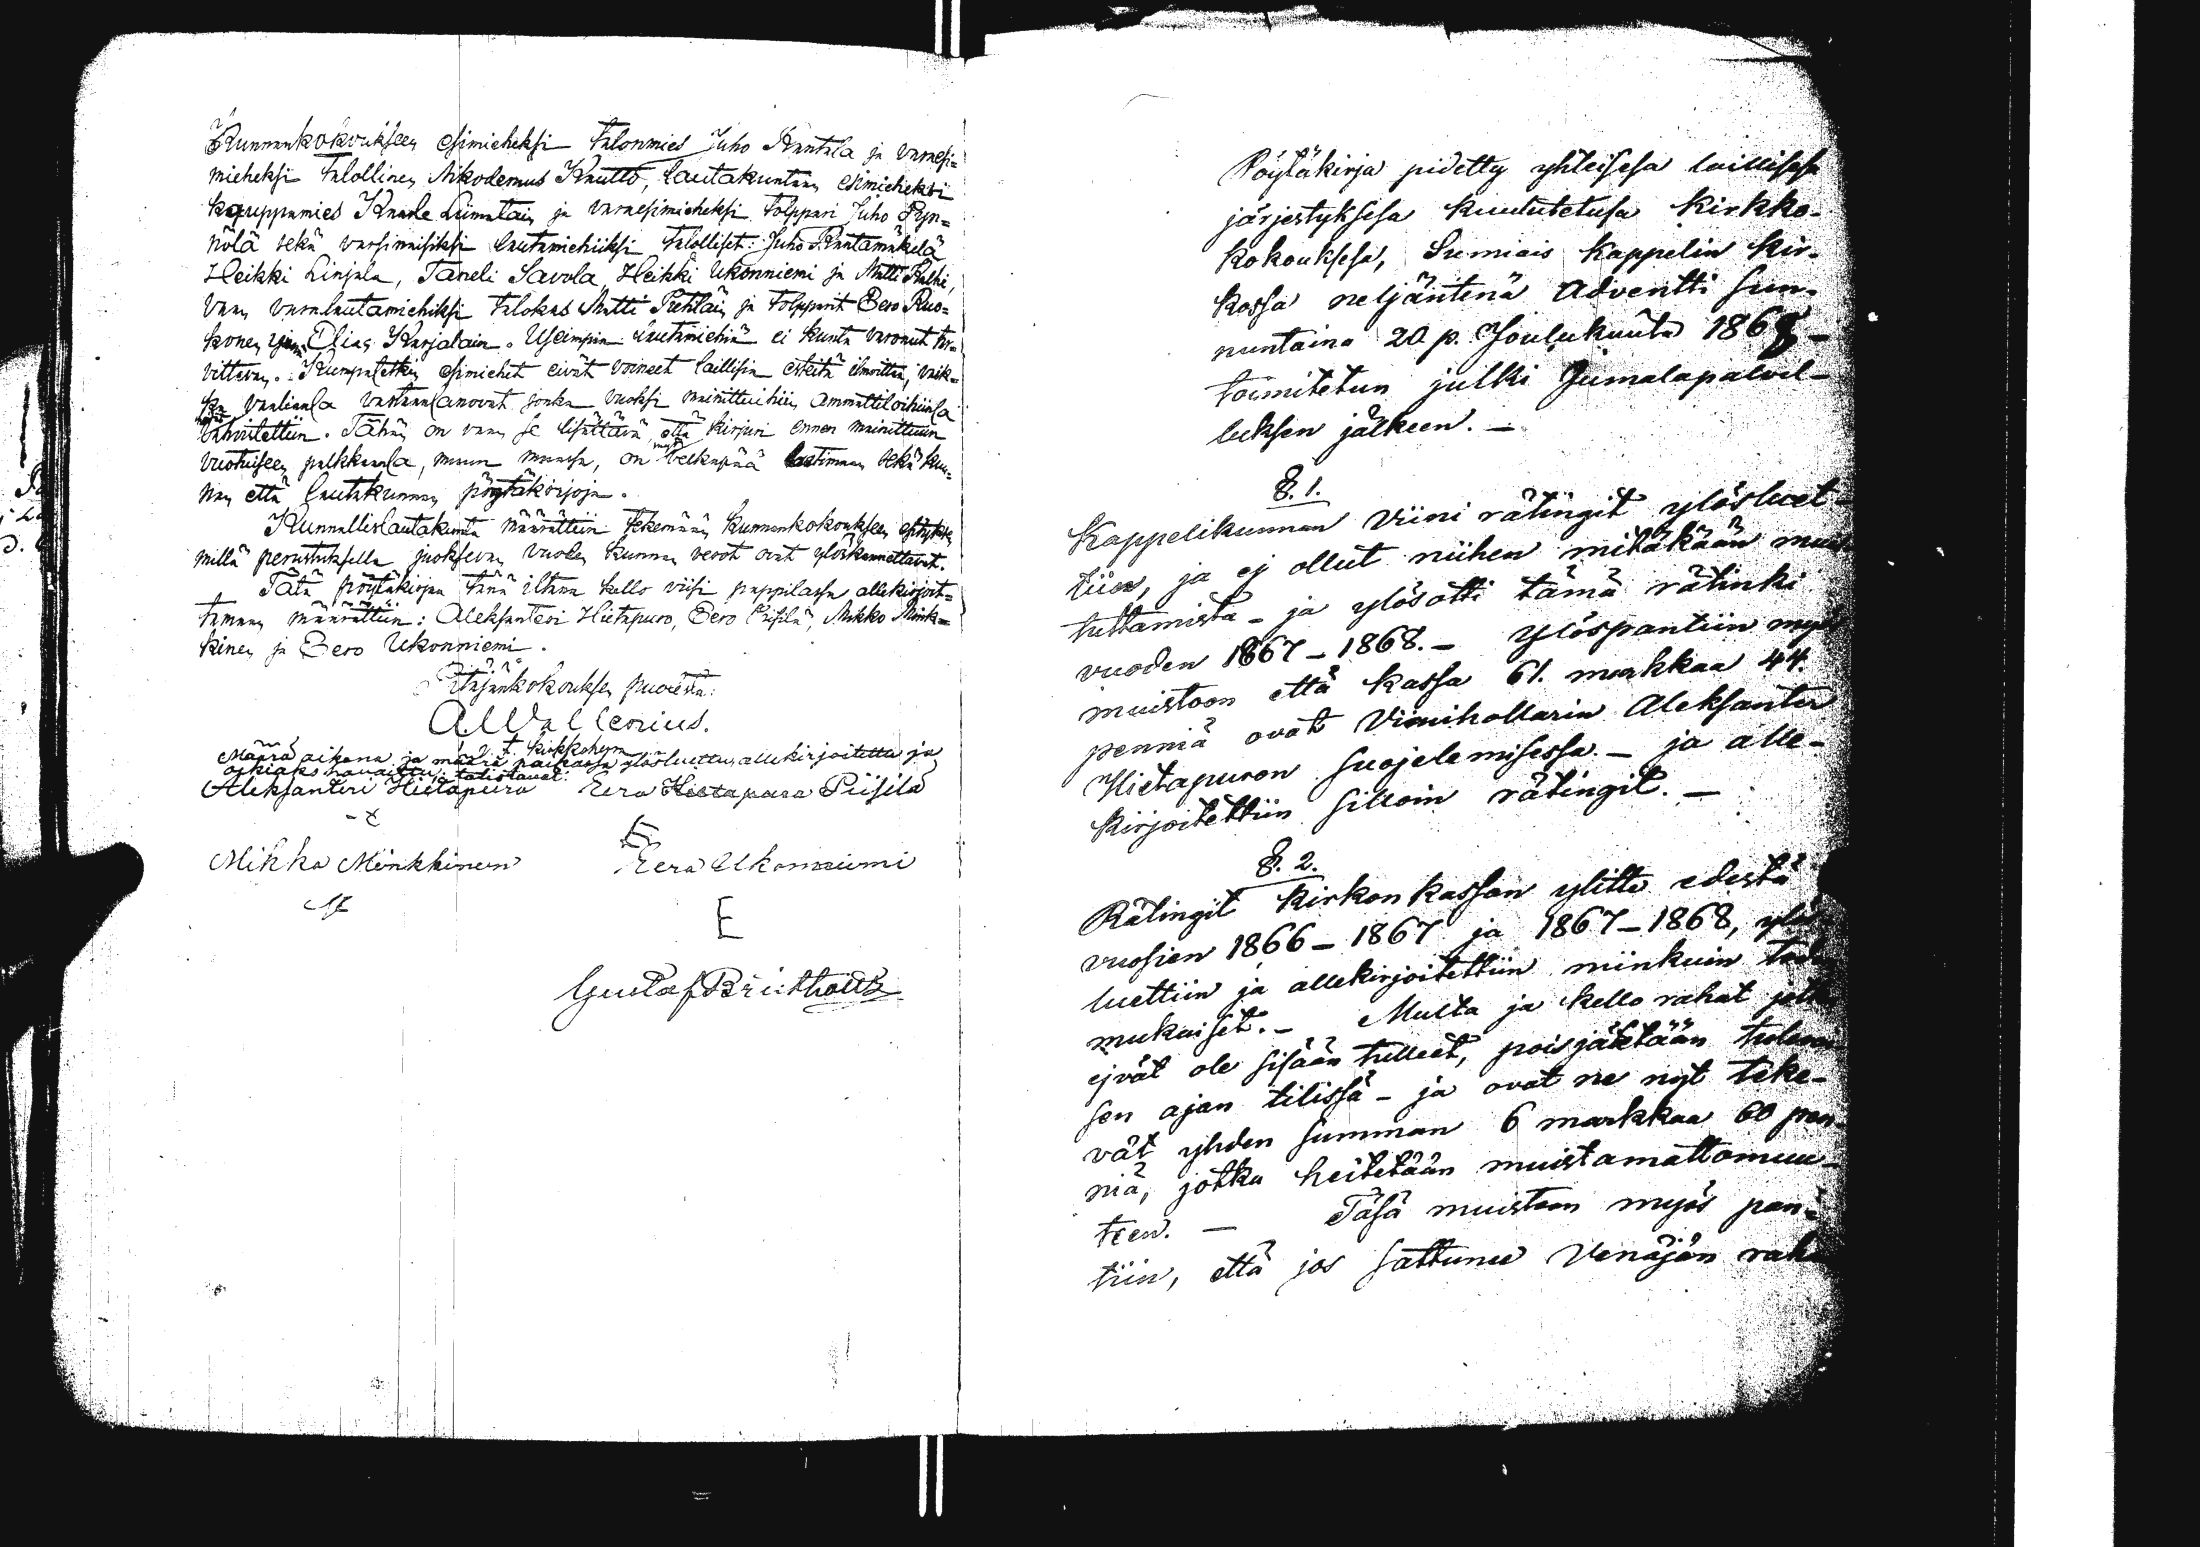 Kunnankokoukseen esimieheksi talonmies Juho Rantala ja varaesi=
mieheksi talollinen Nikodemus Knutto, lautakuntaan esimieheksi
kauppamies Kaarle Liimatain ja varaesimieheksi tolppari Juho Pyn=
nölä sekä varsinaisiksi lautamiehiiksi talolliset: Juho Rautamäkelä
Heikki Linjala, Taneli Savola, Heikki Ukonniemi ja Matti
vaan varalautamiehiksi talokas Matti ja tolpparit Eero Ruo=
konen ynnä Elias Karjalain. Useimpia lautamiehiä ei kunta varonut tar=
vittevan. Kumpaletkin esimiehet eivät voineet laillisia esteitä ilmoittaa, vaik=
ka vaaliansa vastaan sanovat jonka vuoksi mainittuihin ammattiloihinsa
vahvistettiin. Tähän on vaan se lisättävä että kirjuri ennen mainittuun
vuotuiseen palkkaansa, muun muassa, on myös velkapää laatimaan sekä kun=
nan että lautakunnan pöytäkirjoja.
Kunnallislautakunta määrättiin tekemään kunnankokoukseen esityksen
millä perustuksella juoksevan vuoden kunnan verot ovat ylöskannettavat.
Tätä pöytäkirjaa tänä iltana kello viisi pappilassa allekirjoit=
tamaan määrättiin: Aleksanteri Hietapuro, Eero Piisilä, Mikko Mink=
kinen ja Eero Ukonniemi.
Pitäjänkokouksen puolesta:
A. Wallenius.
v. t. kirkkoherra
Määrä aikana ja määrä paikassa ylösluettu, allekirjoitettu ja
oikiaks havaittu, totistavat:
Aleksanteri Hietapuro Eero Hietapuro Piisilä
Mikko Minkkinen Eero Ukonniemi
M
E
Gustaf Brutholtz
Pöytäkirja pidetty yhteisesa laillisesa
järjestyksesa kuulutetusa kirkko-
kokouksesa, Sumiais kappelin kir-
kossa neljäntenä Adventti sun-
nuntaina 20 p. Joulukuuta 1868 -
toimitetun julki Jumalapalvel-
luksen jälkeen. -
§. 1.
Kappelikunnan viini rätingit ylösluet-
tiin, ja ej ollut niihen mitäkään muis
tuttamista - ja ylösotti tämä rätinki
vuoden 1867 - 1868. - Ylöspantiin myös
muistoon että kassa 61. markkaa 44.
penniä ovat Viinihollarin Aleksanter
Hietapuron suojelemisessa. - ja alle-
kirjoitettiin silloin rätingit. -
§. 2.
Rätingit kirkonkassan ylitte edestä
vuosien 1866 - 1867 ja 1867 - 1868, ylös
luettiin ja allekirjoitettiin niinkuin toden
mukaiset. - Multa ja kello rahat jotka
ejvät ole sisään tulleet, poisjätetään tulevai
sen ajan tilissä - ja ovat ne nyt teke-
vät yhden summan 6 markkaa 60 pen-
niä, jotka heitetään muistamattomuu-
teen. - Täsä muistoon myös pan-
tiin, että jos sattunee Venäjän raha